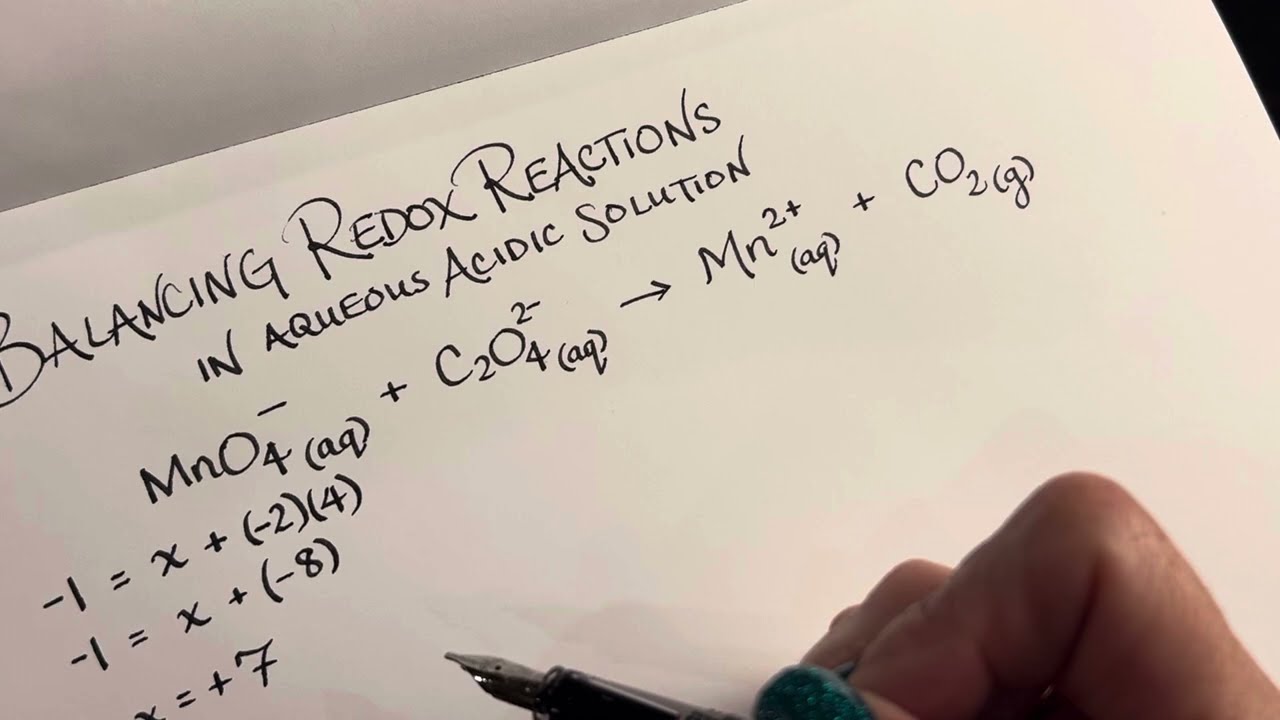 BALANCING REDOX REACTIONS
IN AQUEOUS ACIDIC SOLUTION
MnO₄⁻(aq) + C₂O₄²⁻(aq) → Mn²⁺(aq) + CO₂(g)
-1 = x + (-2)(4)
-1 = x + (-8)
x = +7